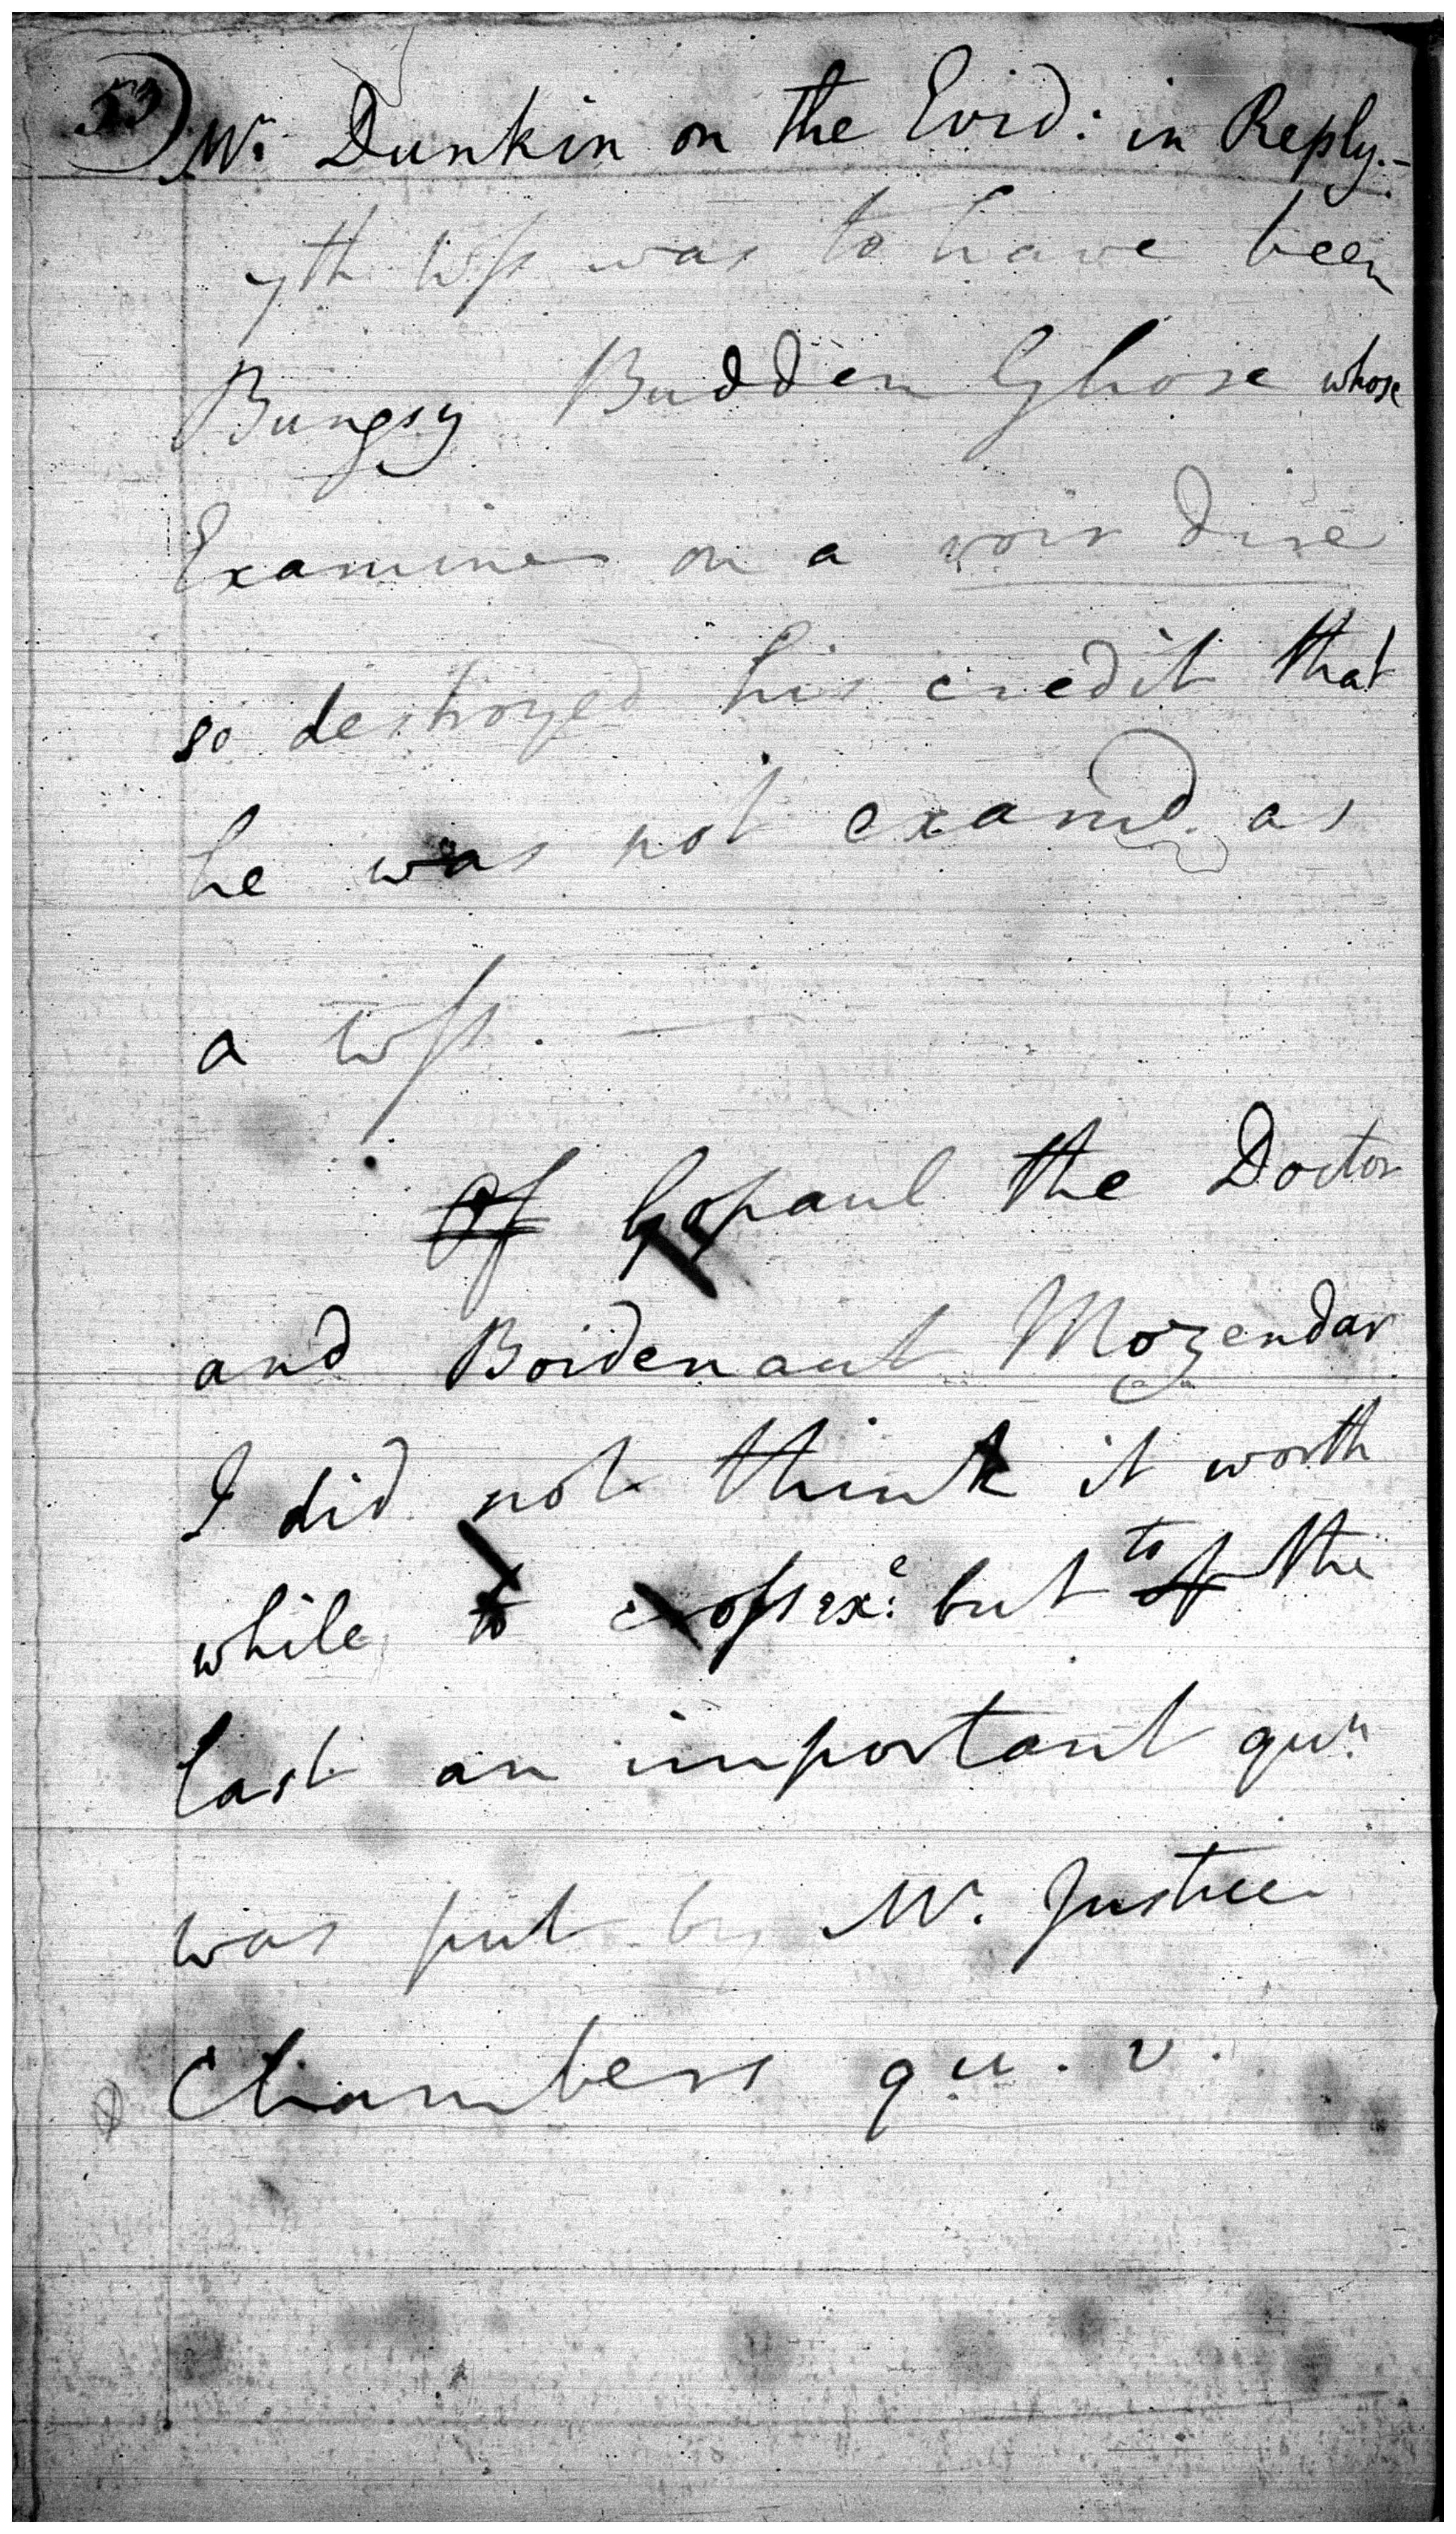 53) Mr. Dunkin on the Evid: in Reply.-
7th wss was to have been
Bungsy Budden Ghose whose
Examine on a voir dire
so destroyed his credit that
he was not examd. as
a wss. —
Of Gopaul the Doctor
and Boidenaut Mozendar
I did not think it worth
while to crossexe: but to of the
last an important qun.
was put by Mr. Justice
Chambers qu. v.